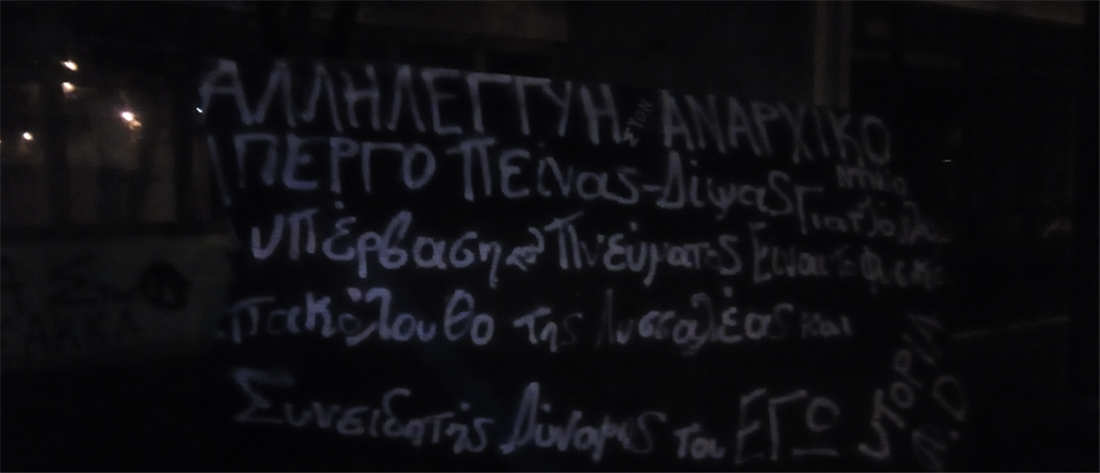 ΑΛΛΗΛΕΓΓΥΗ ΣΤΟΝ ΑΝΑΡΧΙΚΟ
ΠΕΡΓΟ ΠΕίνας-Δίψας Ντίνο Γιατζόγλου
υπέρβαση του Πνεύματος Είναι το φυσικό
πακόλουθο της Λυσσαλέας και
Συνειδητής Δύναμις του ΕΓΩ